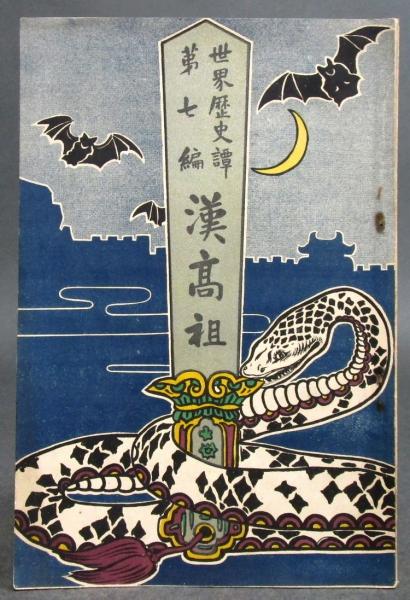 世界歴史譚
第七編
漢高祖